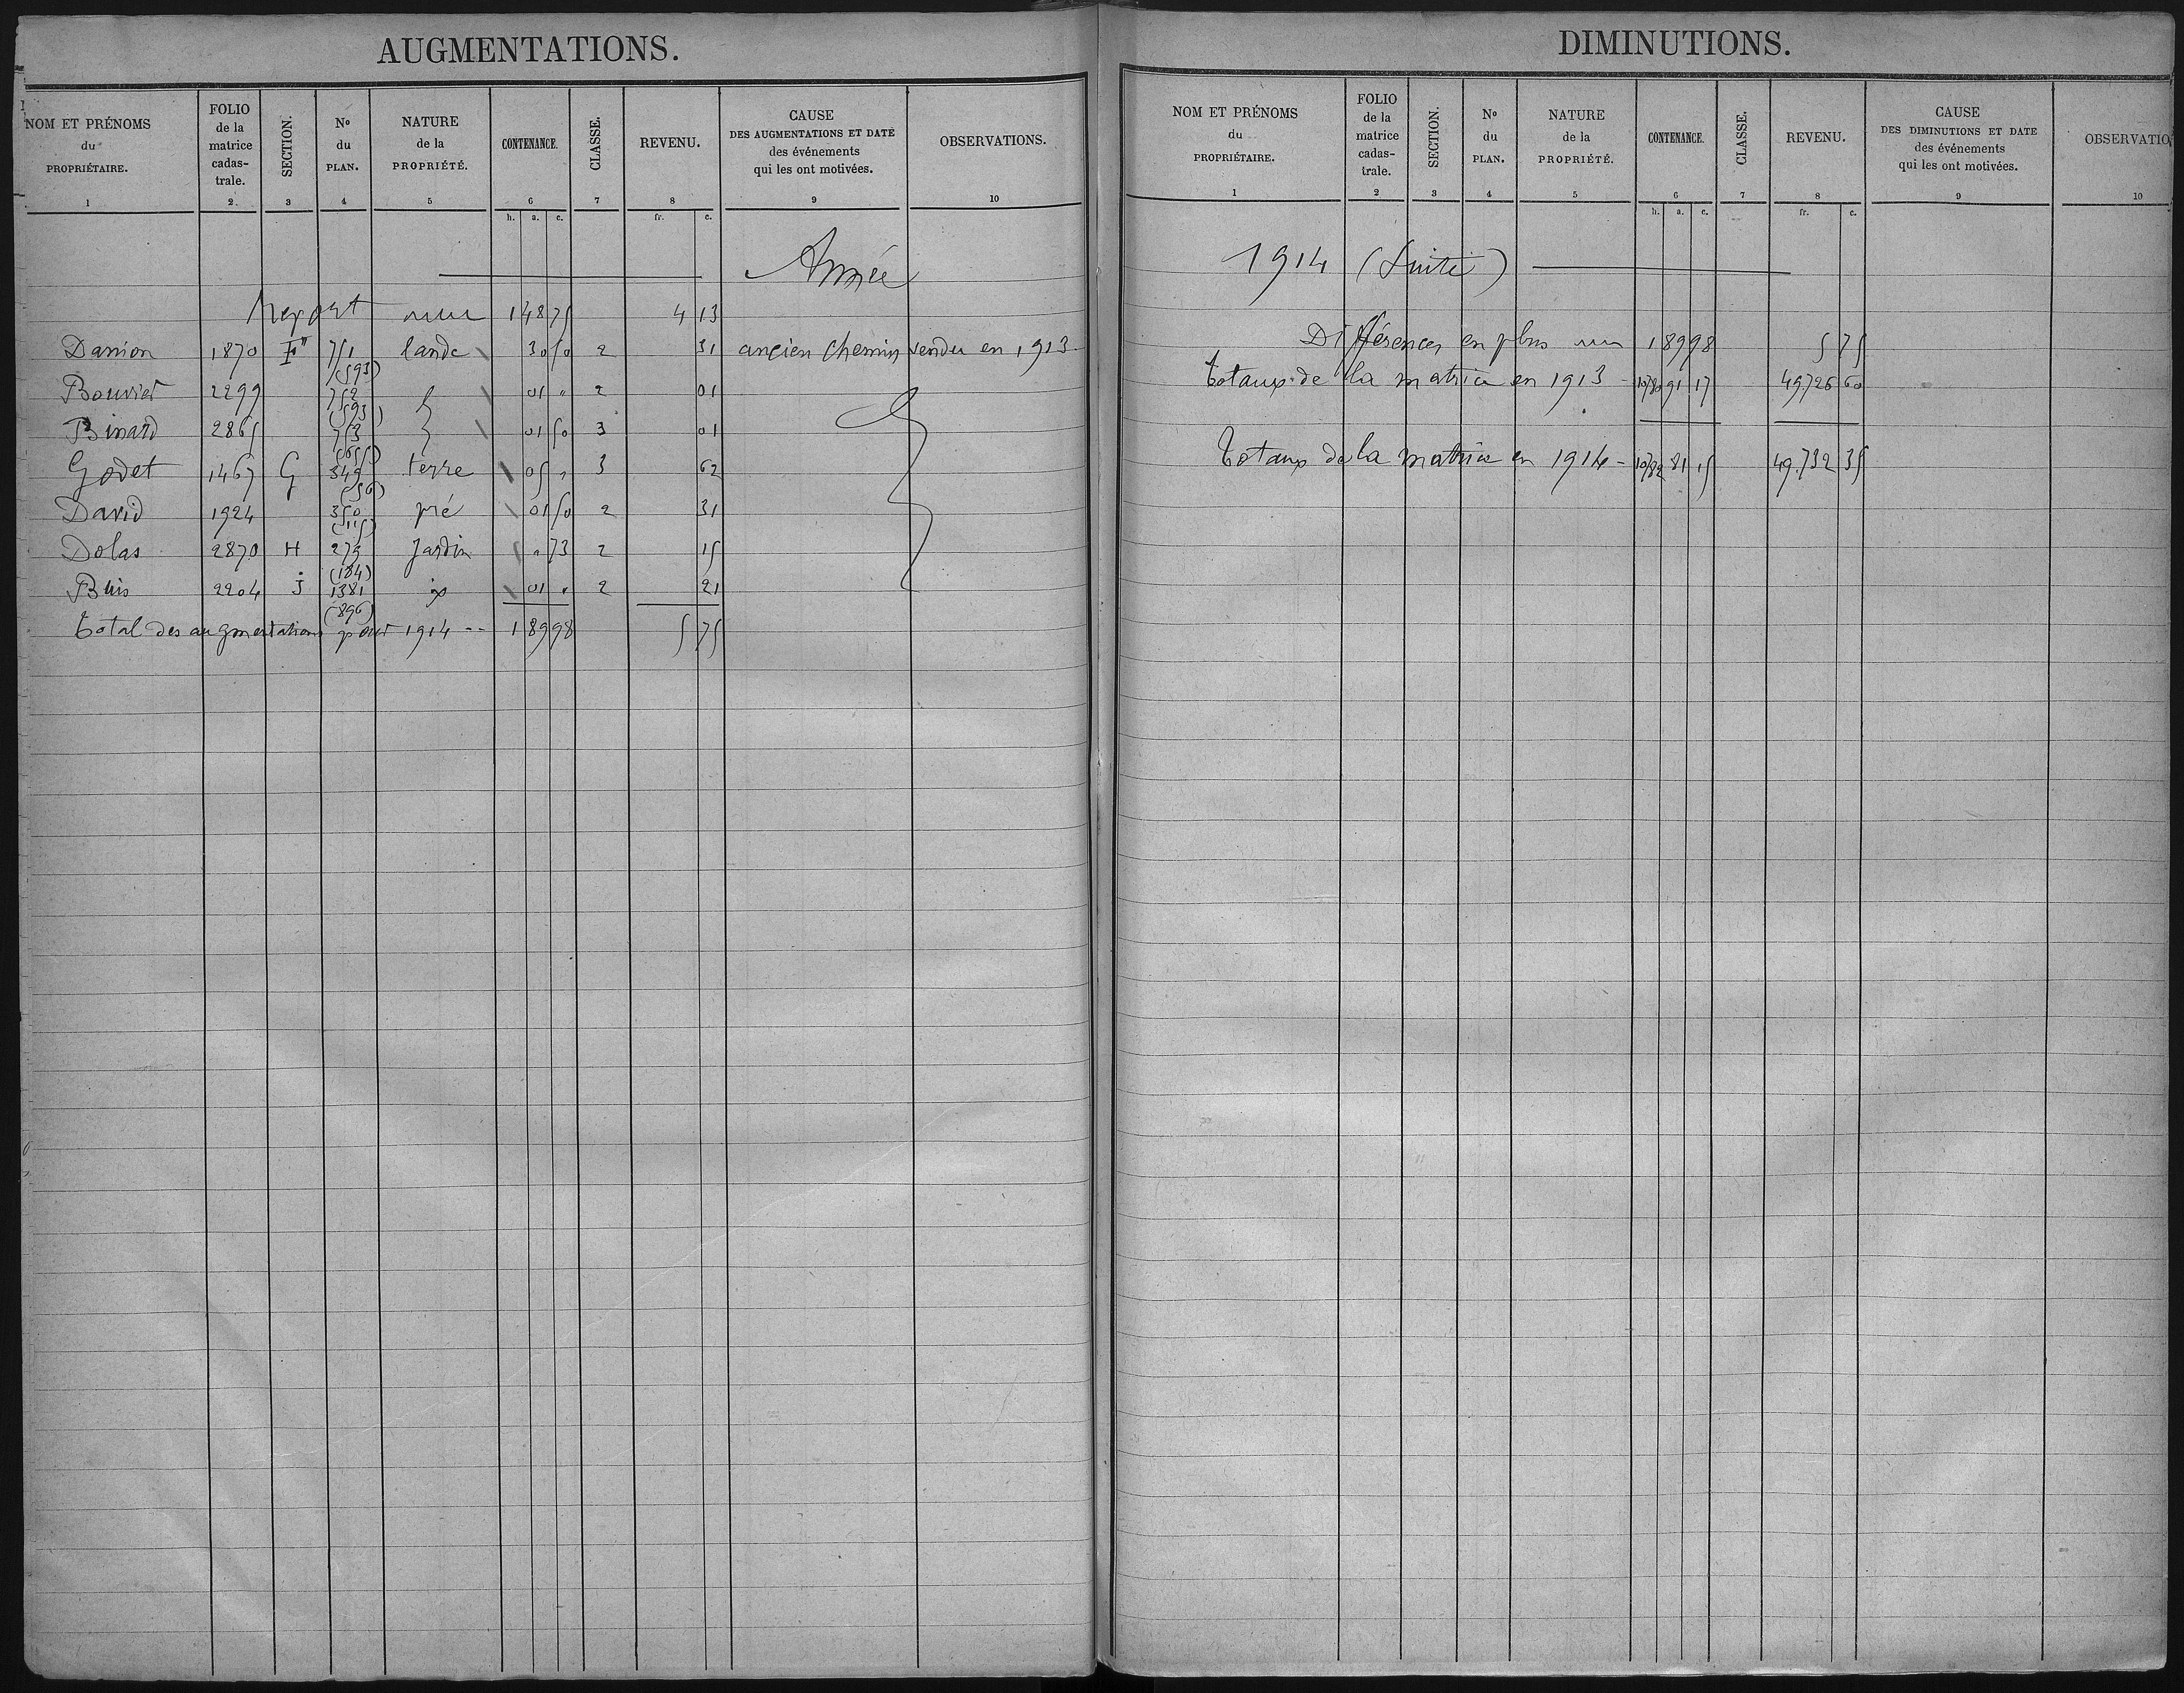 AUGMENTATIONS.
NOM ET PRÉNOMS du PROPRIÉTAIRE. FOLIO de la matrice cadas- trale. SECTION. No du PLAN. NATURE de la PROPRIÉTÉ. CONTENANCE. CLASSE. REVENU. CAUSE DES AUGMENTATIONS ET DATE des événements qui les ont motivées. OBSERVATIONS.
1 2. 3 4 5 6 7 8 9 10
h. a. c. fr. c.
Année
Report 1 48 75 4 13
Danion 1870 F" 751 lande 30 50 2 31 ancien chemin vendu en 1913
(593)
Bouvier 2299 752 01 " 2 01
(593)
Binard 2865 753 01 50 3 01
(655)
Godet 1467 G 349 terre 05 " 3 62
(56)
David 1924 350 pré 01 50 2 31
(115)
Dolas 2870 H 273 Jardin " 73 2 15
(184)
Buis 2204 J 1381 01 " 2 21
(896)
Total des augmentations pour 1914 -- 1 89 98 5 75
DIMINUTIONS.
NOM ET PRÉNOMS du PROPRIÉTAIRE. FOLIO de la matrice cadas- trale. SECTION. No du PLAN. NATURE de la PROPRIÉTÉ. CONTENANCE. CLASSE. REVENU. CAUSE DES DIMINUTIONS ET DATE des événements qui les ont motivées. OBSERVATIO
1 2 3 4 5 6 7 8 9 10
h. a. c. fr. c.
1914 (Suite)
Différences en plus 1 89 98 5 75
Totaux de la matrice en 1913 - 10780 91 17 49.726 60
Totaux de la matrice en 1914 - 10782 81 15 49.732 35